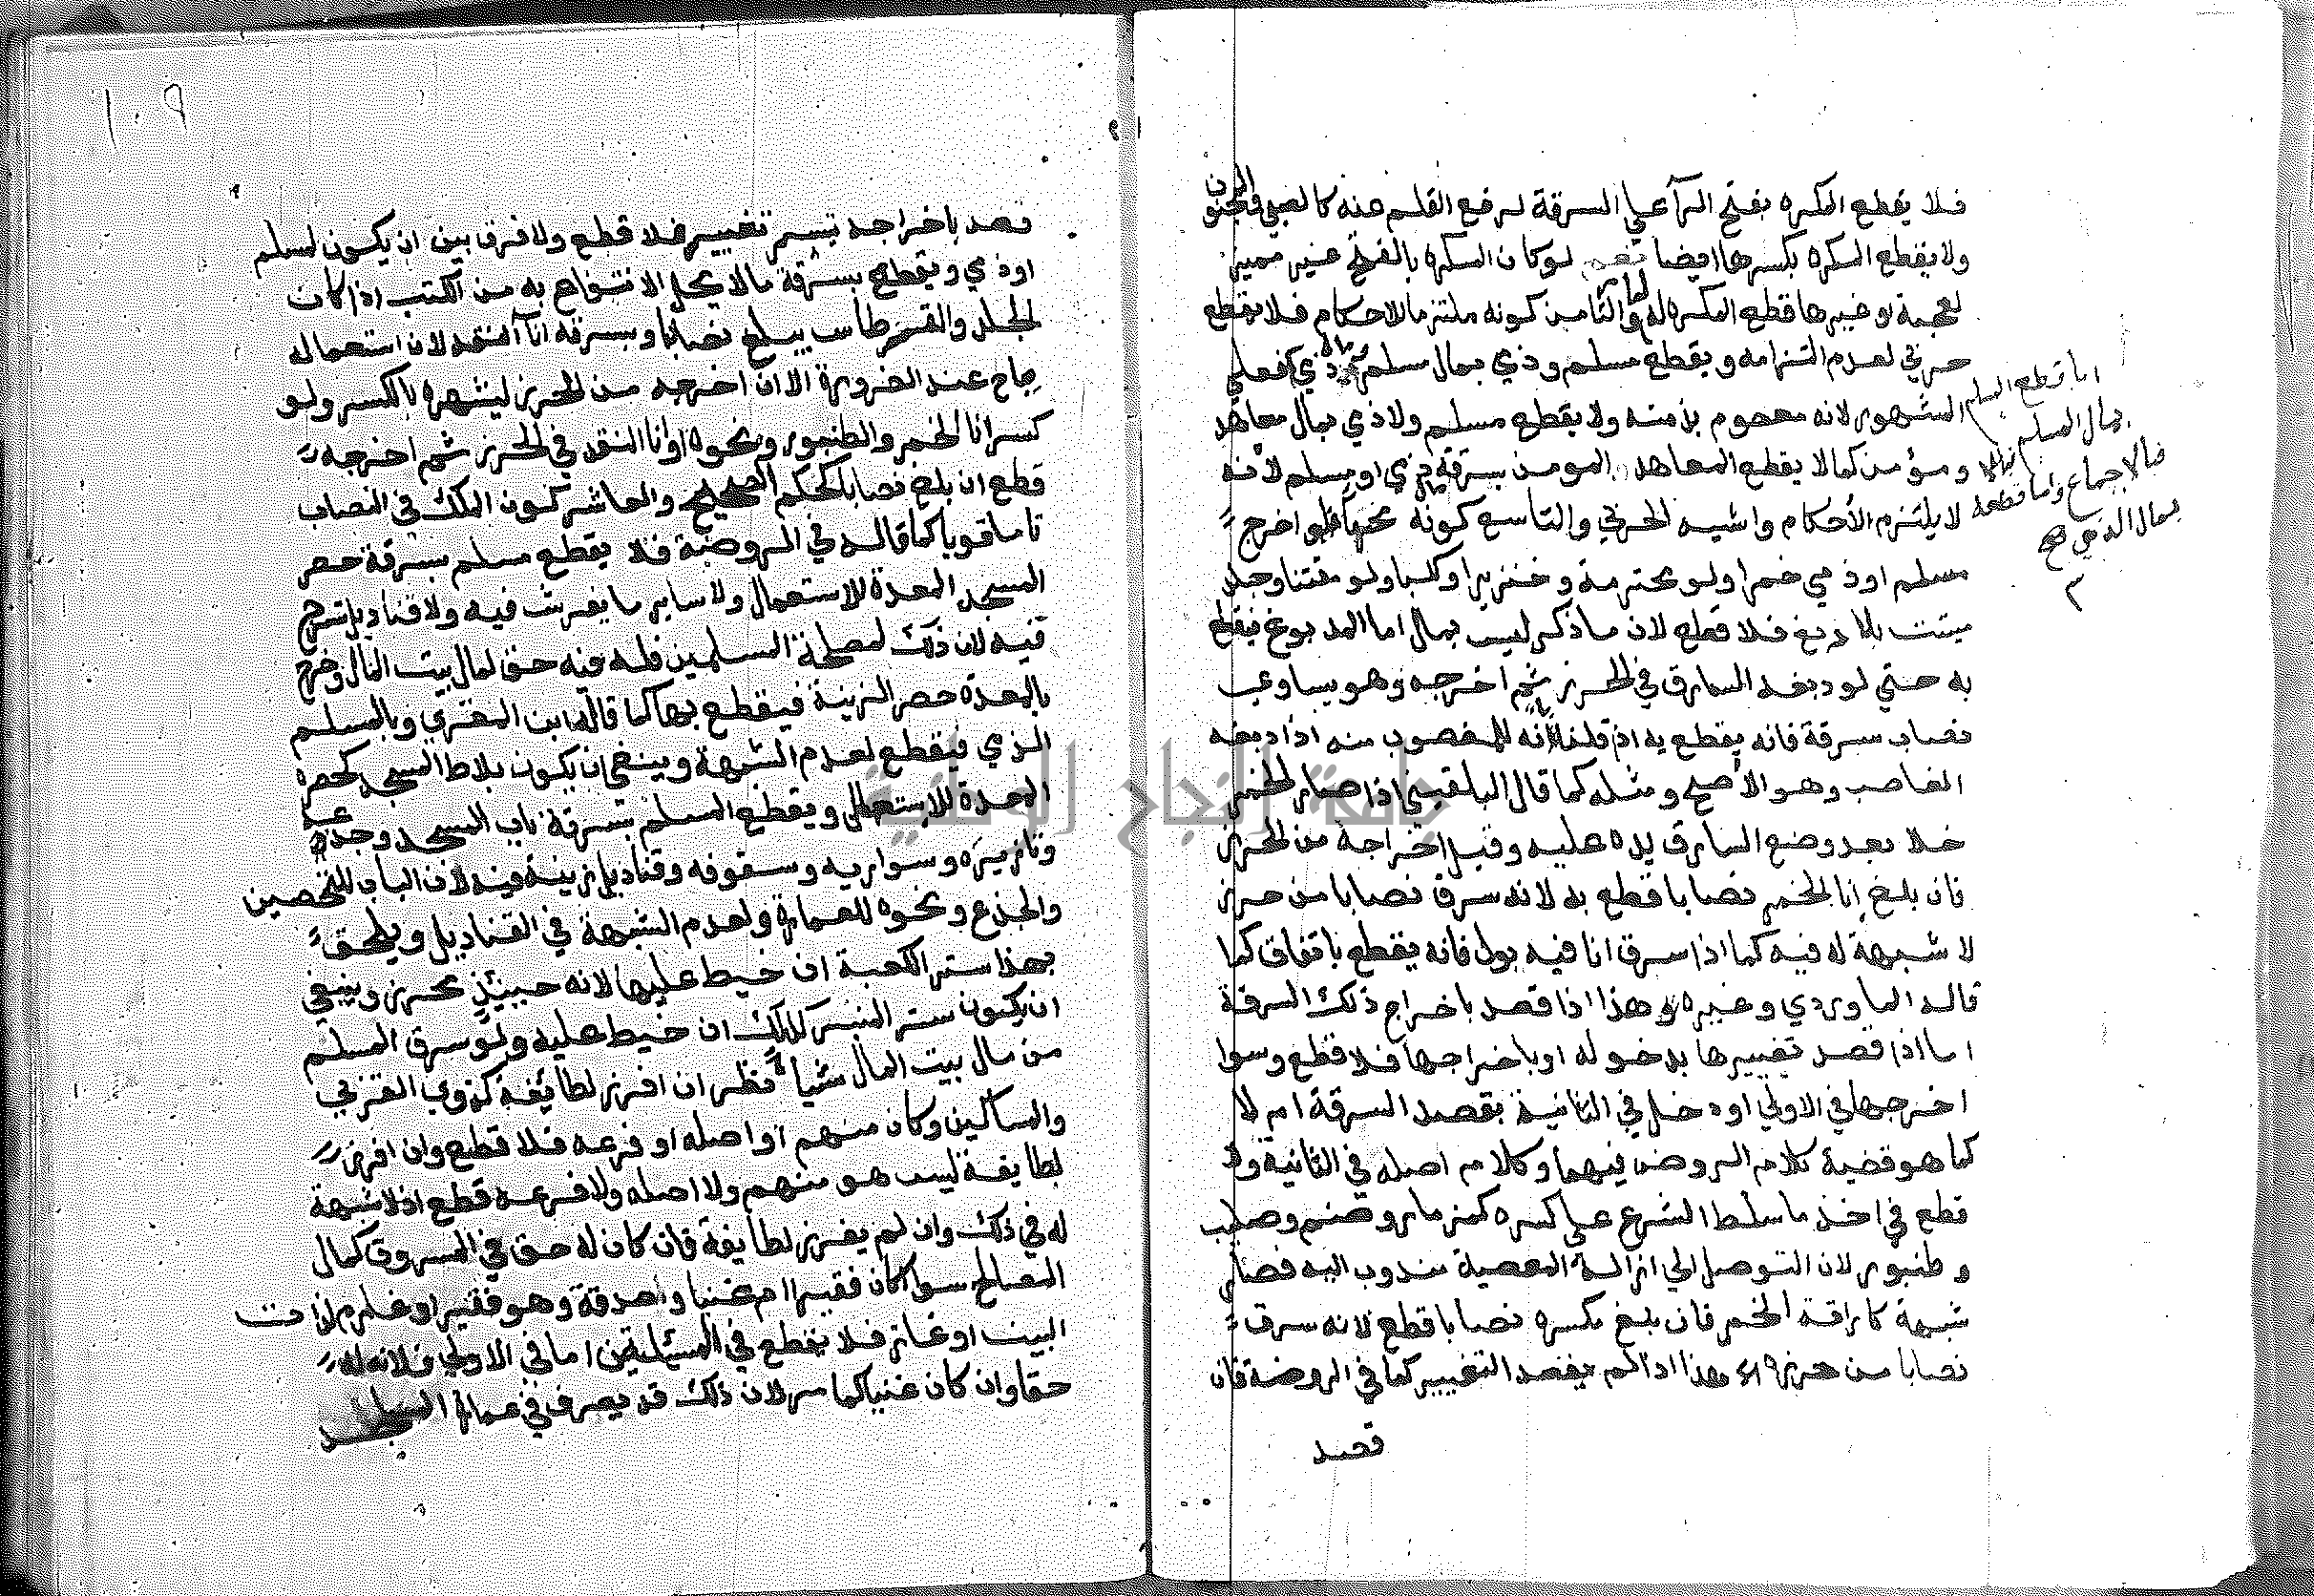 فلا يقطع المكره بفتح الرآ علي السرقة لرفع القلم عنه كالصبي والمجنون
ولا يقطع المكره بكسرها ايضا نعم لو كان المكره بالفتح غير مميز
لعجمة او غيرها قطع المكره له والثامن كونه ملتزما للاحكام فلا يقطع
حربي لعدم التزامه ويقطع مسلم وذمي بمال مسلم وذمي فعلي
المشهور لانه معصوم بذمته ولا يقطع مسلم ولا ذمي بمال معاهد
ومؤمن كما لا يقطع المعاهد المومن بسرقة ذمي او مسلم لانه
لا يلتزم الأحكام واشبه الحربي والتاسع كونه محترما فلو اخرج
مسلم او ذمي خمرا ولو محترمة وخنزيرا وكلبا ولو مقتنا وجلد
ميتت بلا دبغ فلا قطع لان ما ذكر ليس بمال اما المدبوغ فيقطع
به حتي لو دبغه السارق في الحرز ثم اخرجه وهو يساوي
نصاب سرقة فانه يقطع به اذ قلنا انه للمغصوب منه اذا دبغه
الغاصب وهو الأصح ومثله كما قال البلقيني اذا صار الخمر
خلا بعد وضع السارق يده عليه وقبل اخراجه من الحرز
فان بلغ انا الخمر نصابا قطع به لانه سرق نصابا من حرز
لا شبهة له فيه كما اذا سرق انا فيه بول فانه يقطع باتفاق كما
قاله الماوردي وغيره وهذا اذا قصد باخراج ذلك السرقة
اما اذا قصد تغييرها بدخوله او باخراجها فلا قطع وسوا
اخرجها في الاولي او دخل في الثانية بقصد السرقة ام لا
كما هو قضية كلام الروض فيهما وكلام اصله في الثانية ولا
قطع في اخذ ما سلط الشرع علي كسره كمزمار وصنم وصليب
وطنبور لان التوصل الي ازالة المعصية مندوب اليه فصار
شبهة كاراقة الخمر فان بلغ مكسره نصابا قطع لانه سرق
نصابا من حرزه هذا اذا لم يقصد التغيير كما في الروضة فان
قصد
اما قطع المسلم
بمال المسلم
فبالاجماع واما قطعه
بمال الذمي صح
١٠٩
قصد باخراجه تيسر تغييره فلا قطع ولا فرق بين ان يكون لمسلم
او ذمي ويقطع بسرقة ما لا يحل الانتفاع به من الكتب اذا كان
الجلد والقرطاس يبلغ نصابا وبسرقة انآ النقد لان استعماله
يباح عند الضرورة الا ان اخرجه من الحرز ليشهره بالكسر ولو
كسر انا الخمر والطنبور ونحوه او انا النقد في الحرز ثم اخرجه
قطع ان بلغ نصابا كحكم الصحيح والعاشر كون الملك في النصاب
تاما قويا كما قاله في الروضة فلا يقطع مسلم بسرقة حصر
المسجد المعدة للاستعمال ولا ساير ما يفرش فيه ولا قناديل تسرج
فيه لان ذلك لمصلحة المسلمين فله فيه حق لمال بيت المال وخرج
بالمعدة حصر الزينة فيقطع بها كما قاله ابن المقري وبالمسلم
الذمي فيقطع لعدم الشبهة وينبغي ان يكون بلاط المسجد كحصره
المعدة للاستعمال ويقطع المسلم بسرقة باب المسجد وجذعه
وتازيره وسواريه وسقوفه وقناديل زينة فيه لان الباب للتحصين
والجذع ونحوه للعمارة ولعدم الشبهة في القناديل ويلحق
بهذا ستر الكعبة ان خيط عليها لانه حينيذ محرز وينبغي
ان يكون ستر المنبر كذلك ان خيط عليه ولو سرق المسلم
من مال بيت المال شيا نظر ان افرز لطايفة كذوي القربي
والمساكين وكان منهم او اصله او فرعه فلا قطع وان افرز
لطايفة ليس هو منهم ولا اصله ولا فرعه قطع اذ لا شبهة
له في ذلك وان لم يفرز لطايفة فان كان له حق في المسروق كمال
المصالح سوا كان فقيرا ام غنيا وصدقة وهو فقير او غارم لذات
البين او غاز فلا يقطع في المسئلتين اما في الاولي فلانه له
حقا وان كان غنيا كما مر لان ذلك قد يصرف في عمارة المساجد
جامعة النجاح الوطنية